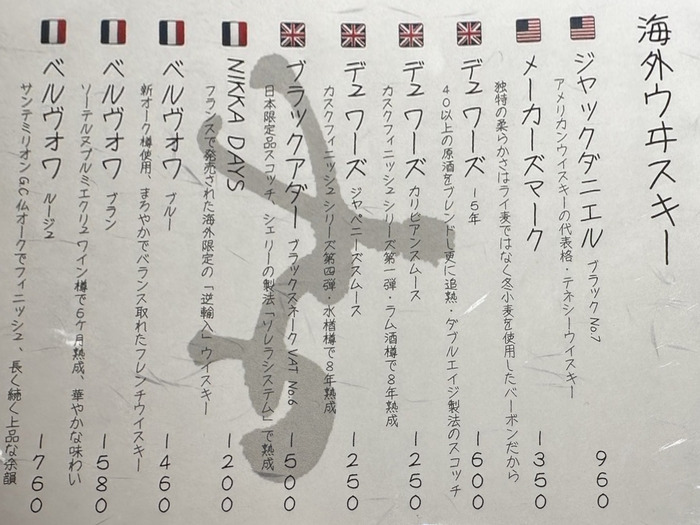 海外ウヰスキー
ジャックダニエル ブラックNo.7 960
アメリカンウイスキーの代表格・テネシーウイスキー
メーカーズマーク 1350
独特の柔らかさはライ麦ではなく冬小麦を使用したバーボンだから
デュワーズ 15年 1600
40以上の原酒をブレンドし更に追熟・ダブルエイジ製法のスコッチ
デュワーズ カリビアンスムース 1250
カスクフィニッシュシリーズ第一弾・ラム酒樽で8年熟成
デュワーズ ジャパニーズスムース 1250
カスクフィニッシュシリーズ第四弾・水楢樽で8年熟成
ブラックアダー ブラックスネークVAT No.6 1500
日本限定品スコッチ、シェリーの製法「ソレラシステム」で熟成
NIKKA DAYS 1200
フランスで発売された海外限定の「逆輸入」ウイスキー
ベルヴォワ ブルー 1460
新オーク樽使用、まろやかでバランス取れたフレンチウイスキー
ベルヴォワ ブラン 1580
ソーテルヌプルミエクリュワイン樽で6ケ月熟成、華やかな味わい
ベルヴォワ ルージュ 1760
サンテミリオンGC仏オークでフィニッシュ、長く続く上品な余韻